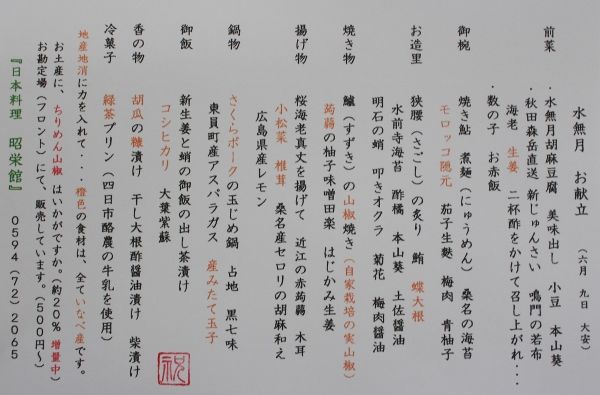 水無月 お献立 (六月 九日 大安)
前菜 ・水無月胡麻豆腐 美味出し 小豆 本山葵
・秋田森岳直送、新じゅんさい 鳴門の若布
海老 生姜 二杯酢をかけて召し上がれ・・・
・数の子 お赤飯
御椀 焼き鮎 煮麺(にゅうめん) 桑名の海苔
モロッコ隠元 茄子生麩 梅肉 青柚子
お造里 狭腰(さごし)の炙り 鮪 蝶大根
水前寺海苔 酢橘 本山葵 土佐醤油
明石の蛸 叩きオクラ 菊花 梅肉醤油
焼き物 鱸(すずき)の山椒焼き(自家栽培の実山椒)
蒟蒻の柚子味噌田楽 はじかみ生姜
揚げ物 桜海老真丈を揚げて 近江の赤蒟蒻 木耳
小松菜 椎茸 桑名産セロリの胡麻和え
広島県産レモン
鍋物 さくらポークの玉じめ鍋 占地 黒七味
東員町産アスパラガス 産みたて玉子
御飯 新生姜と蛸の御飯の出し茶漬け
コシヒカリ 大葉紫蘇
香の物 胡瓜の糠漬け 干し大根酢醤油漬け 柴漬け
冷菓子 緑茶プリン(四日市酪農の牛乳を使用)
祝
地産地消に力を入れて・・・橙色の食材は、全ていなべ産です。
お土産に、ちりめん山椒 はいかがですか。(約20% 増量中)
お勘定場(フロント)にて、販売しています。(500円~)
『日本料理 昭栄館』 0594(72)2065